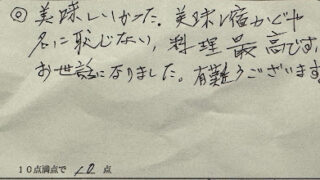 ◎美味しいかった。美味し宿かぐや
名に恥じない，料理最高です，
お世話になりました。有難うございます
10点満点で 10 点